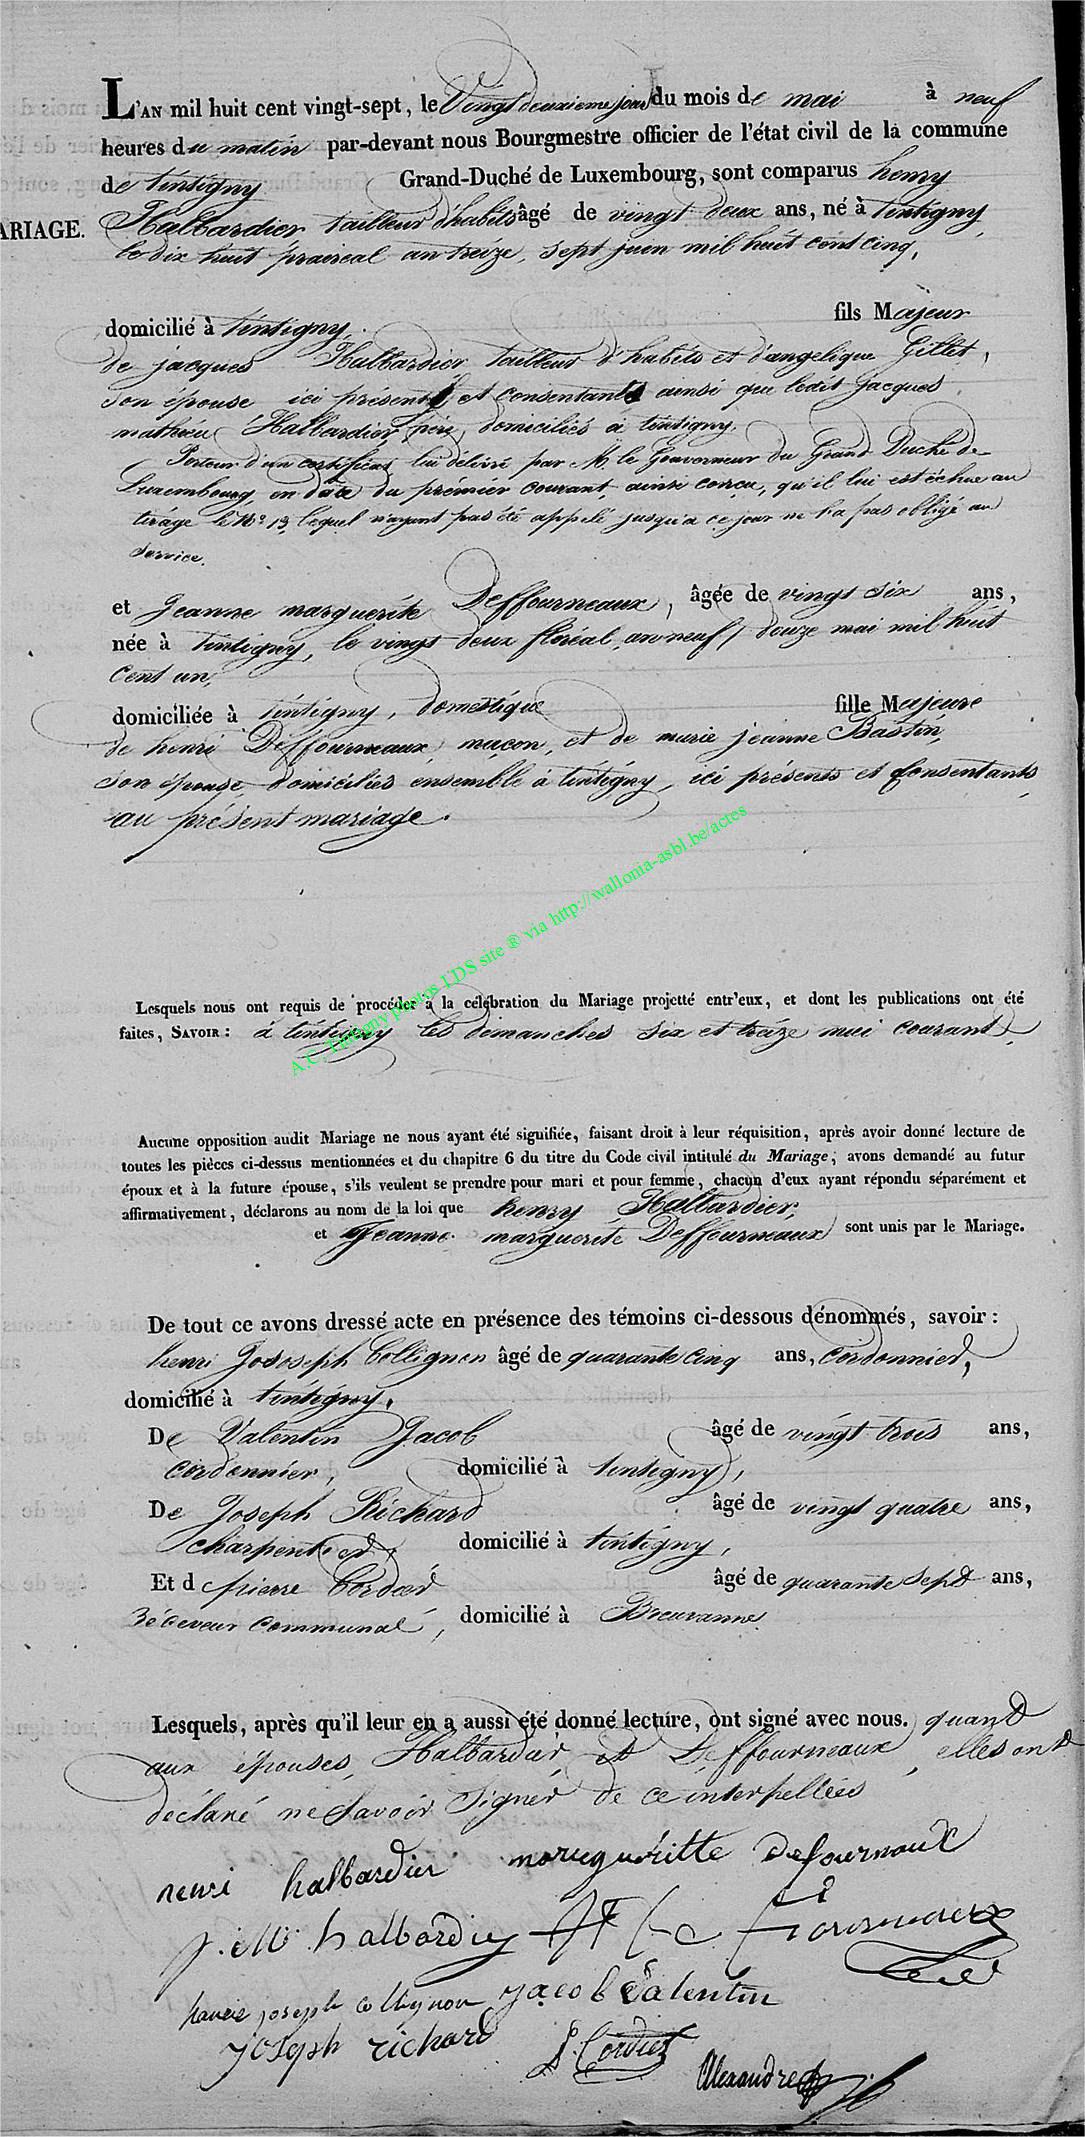 L'AN mil huit cent vingt-sept, le Vingt deuxieme jour du mois de mai à neuf
heures du matin par-devant nous Bourgmestre officier de l'état civil de la commune
de tintigny Grand-Duché de Luxembourg, sont comparus henry
ARIAGE. Halbardier tailleur d'habits âgé de vingt deux ans, né à tintigny,
le dix huit prairéal an treize, sept juin mil huit cent cinq,
domicilié à tintigny, fils Majeur
de jacques Halbardier, tailleur d'habits et d'angelique Gillet,
son épouse ici présente et consentante ainsi que ledit jacques
mathieu Halbardier, père, domiciliés à tintigny.
Porteur d'un certificat lui délivré par M. le Gouverneur du Grand Duché de
Luxembourg en date du prémier courant, ainsi conçu, qu'il lui est échue au
tirage le No 13, lequel n'ayant pas été appelé jusqu'a ce jour ne l'a pas obligé au
service.
et Jeanne marguerite Deffourneaux, âgée de vingt six ans,
née à tintigny, le vingt deux floréal an neuf, douze mai mil huit
cent un,
domiciliée à tintigny, domestique fille Majeure
de henri Deffourneaux, maçon, et de marie jeanne Bastin,
son épouse, domiciliés ensemble à tintigny, ici présents et consentants
au présent mariage.
A.C. Tintigny photos LDS site ® via http://wallonia-asbl.be/actes
Lesquels nous ont requis de procéder à la célébration du Mariage projetté entr'eux, et dont les publications ont été
faites, SAVOIR : à tintigny les dimanches six et treize mai courant,
Aucune opposition audit Mariage ne nous ayant été signifiée, faisant droit à leur réquisition, après avoir donné lecture de
toutes les pièces ci-dessus mentionnées et du chapitre 6 du titre du Code civil intitulé du Mariage, avons demandé au futur
époux et à la future épouse, s'ils veulent se prendre pour mari et pour femme, chacun d'eux ayant répondu séparément et
affirmativement, déclarons au nom de la loi que henry Halbardier,
et Jeanne marguerite Deffourneaux sont unis par le Mariage.
De tout ce avons dressé acte en présence des témoins ci-dessous dénommés, savoir :
henri Jodoseph Collignon âgé de quarante cinq ans, cordonnier,
domicilié à tintigny,
De Valentin Jacob âgé de vingt trois ans,
cordonnier, domicilié à tintigny,
De Joseph Richard âgé de vingt quatre ans,
charpentier, domicilié à tintigny,
Et de pierre Cordier âgé de quarante sept ans,
Réceveur Communal, domicilié à Breuvanne
Lesquels, après qu'il leur en a aussi été donné lecture, ont signé avec nous. quant
aux épouses, Halbardier et Deffourneaux, elles ont
déclaré ne savoir signer de ce interpellées
henri halbardier margueritte Defournaux
j. M. halbardier fournaux
hanri joseph collignon jacob valentin
joseph richard P. Cordier
Alexandre